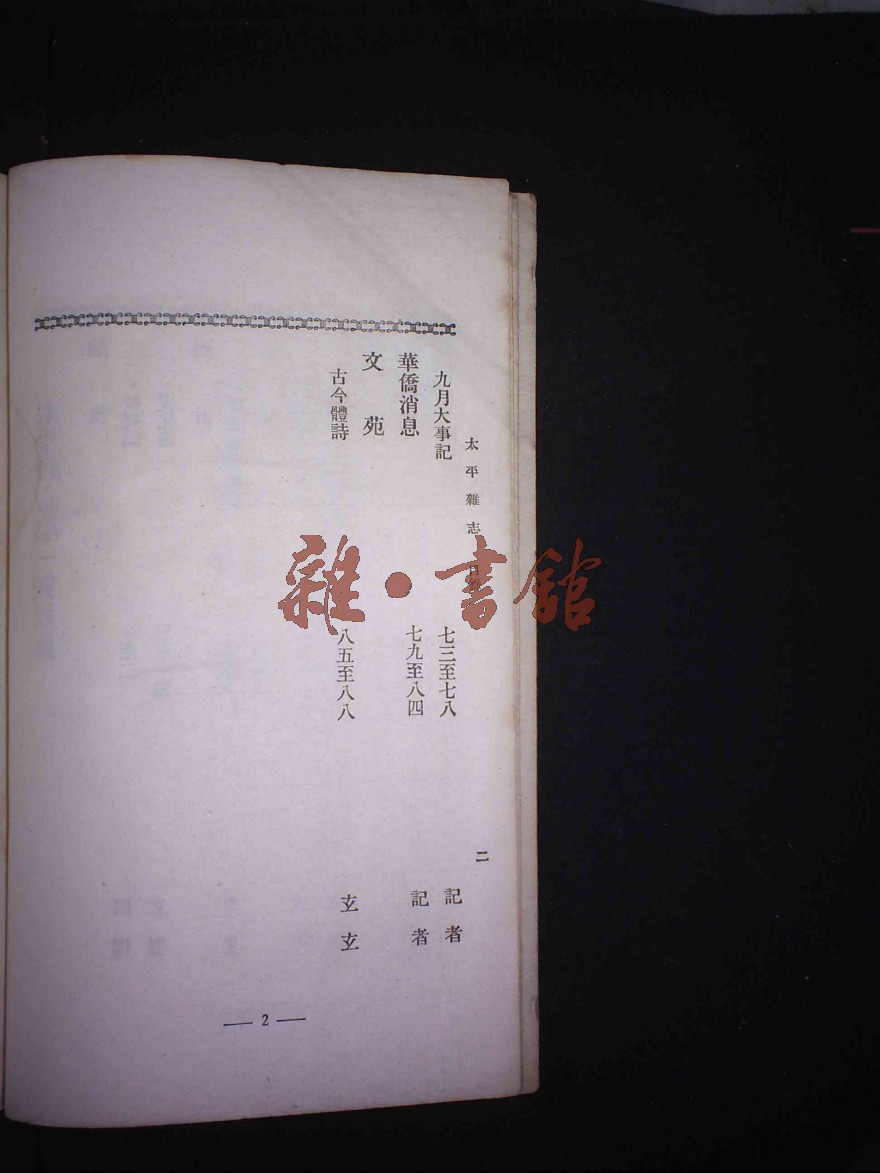 太平雜志 目錄 二
九月大事記 七三至七八 記者
華僑消息 七九至八四 記者
文苑
古今體詩 八五至八八 玄玄
— 2 —
雜·書館